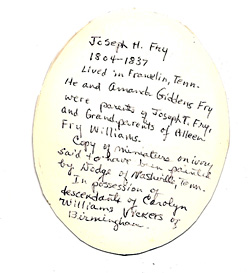 Joseph H. Fry
1804-1837
Lived in Franklin, Tenn.
He and Amanda Giddens Fry
were parents of Joseph T. Fry,
and Grandparents of Alleen
Fry Williams.
Copy of miniature on ivory
said to have been painted
by Dodge of Nashville, Tenn.
In possession of
descendants of Carolyn
Williams Vickers of
Birmingham.